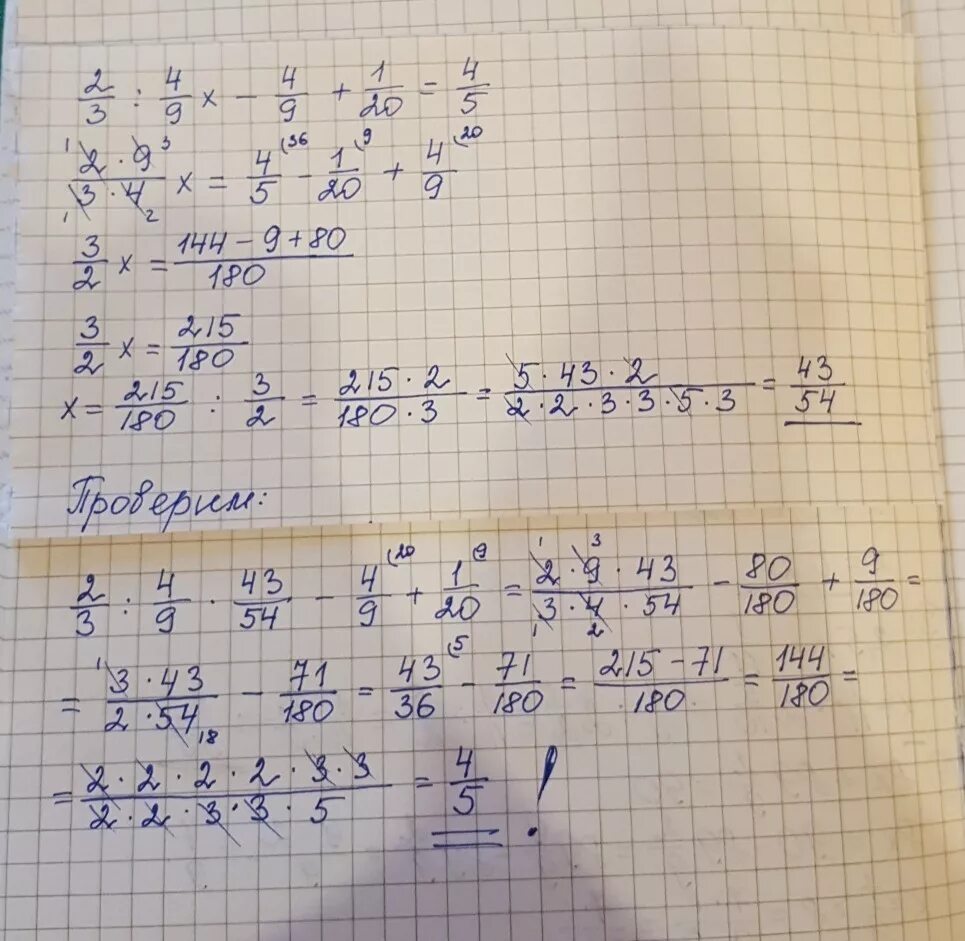 2/3 : 4/9 x - 4/9 + 1/20 = 4/5
¹2 · 9³ / ₁3 · 4₂ x = 4/5 (36 - 1/20 (9 + 4/9 (20
3/2 x = 144 - 9 + 80 / 180
3/2 x = 215/180
x = 215/180 : 3/2 = 215 · 2 / 180 · 3 = 5 · 43 · 2 / 2 · 2 · 3 · 3 · 5 · 3 = 43/54
Проверим:
2/3 : 4/9 · 43/54 - 4/9 (20 + 1/20 (9 = ¹2 · 9³ · 43 / ₁3 · 4₂ · 54 - 80/180 + 9/180 =
= ¹3 · 43 / 2 · 54₁₈ - 71/180 = 43/36 (5 - 71/180 = 215 - 71 / 180 = 144/180 =
= 2 · 2 · 2 · 2 · 3 · 3 / 2 · 2 · 3 · 3 · 5 = 4/5 !